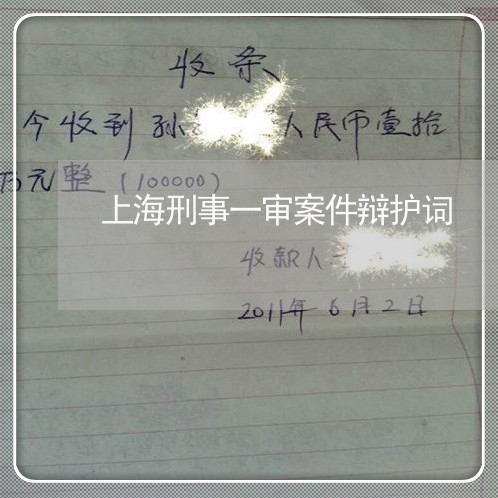 收条
今收到孙 人民币壹拾
万元整(100000)
上海刑事一审案件辩护词
收款人
2011年6月2日